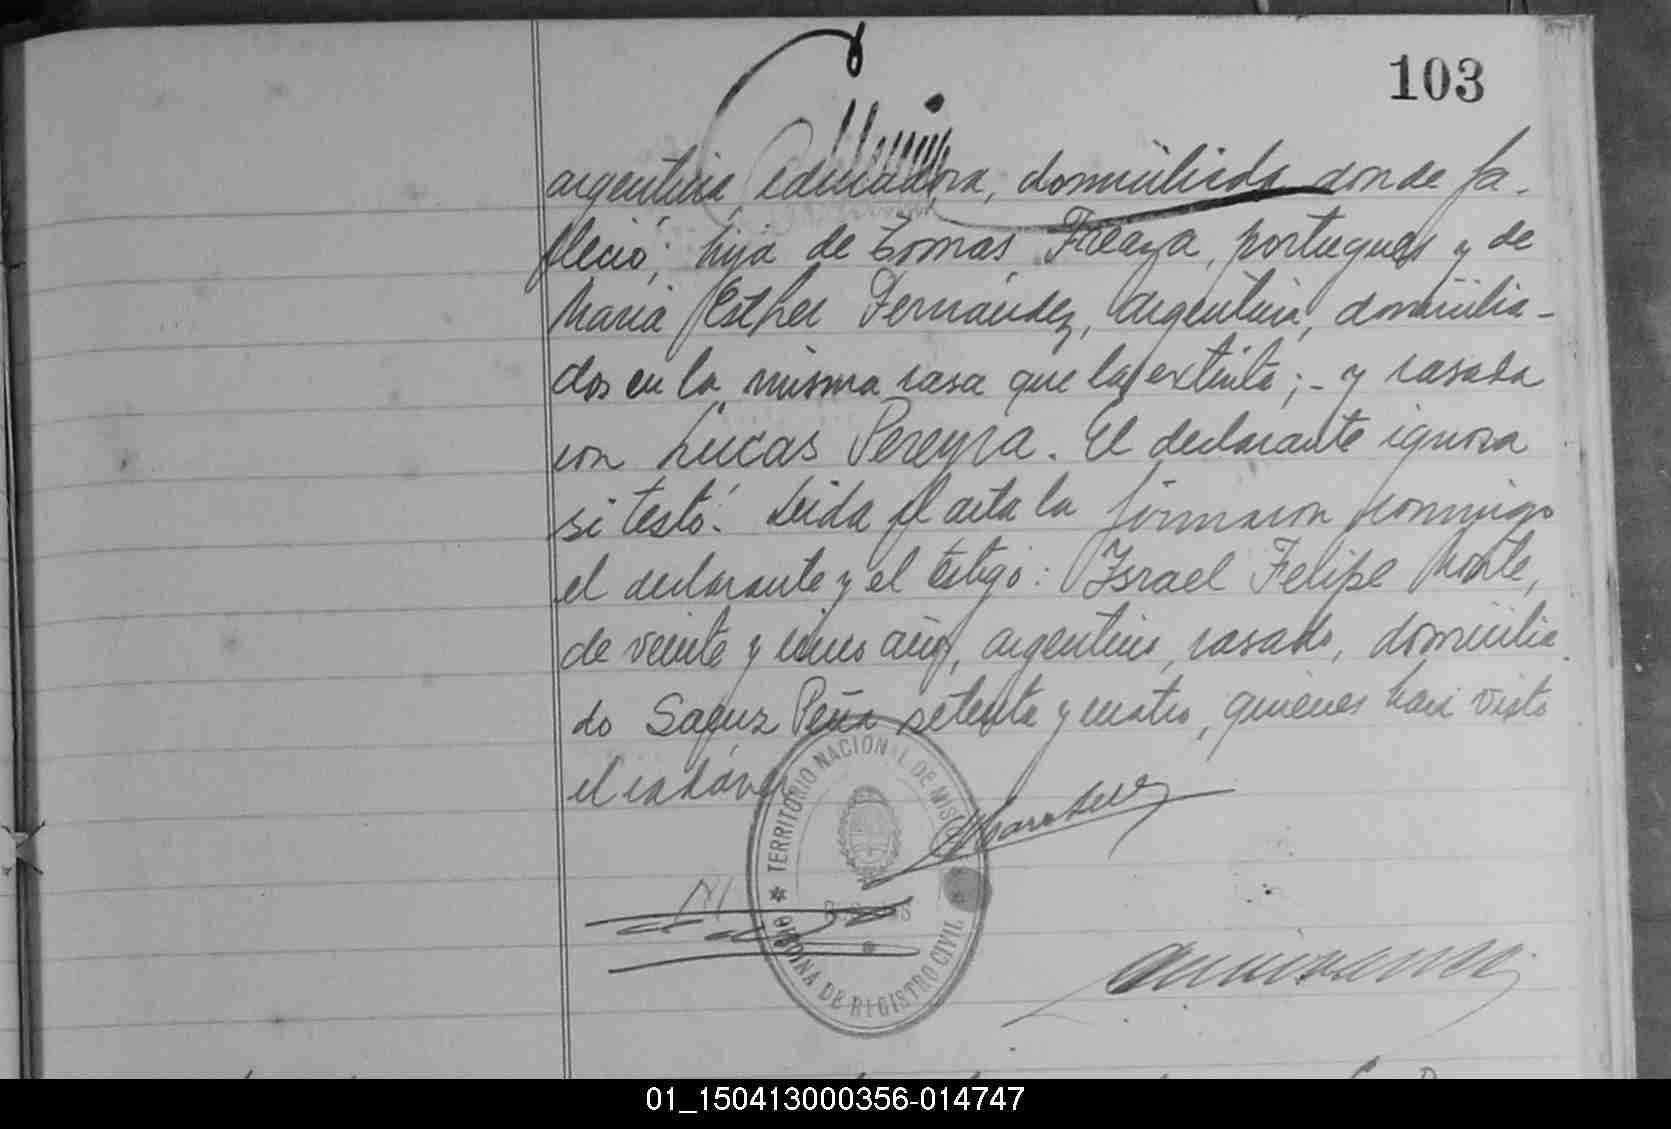 103
argentina, educadora, domiciliada donde fa-
lleció; hija de Tomas Freaza, portugues y de
María Esther Fernández, argentina, domicilia-
dos en la misma casa que la extinta; - y casada
con Lucas Pereyra. El declarante ignora
si testó. Leida el acta la firmaron conmigo
el declarante y el testigo: Israel Felipe Monte,
de veinte y cinco años, argentino, casado, domicilia
do Saenz Peña setenta y cuatro, quienes han visto
el cadáver
TERRITORIO NACIONAL DE MISIONES
OFICINA DE REGISTRO CIVIL
01_150413000356-014747